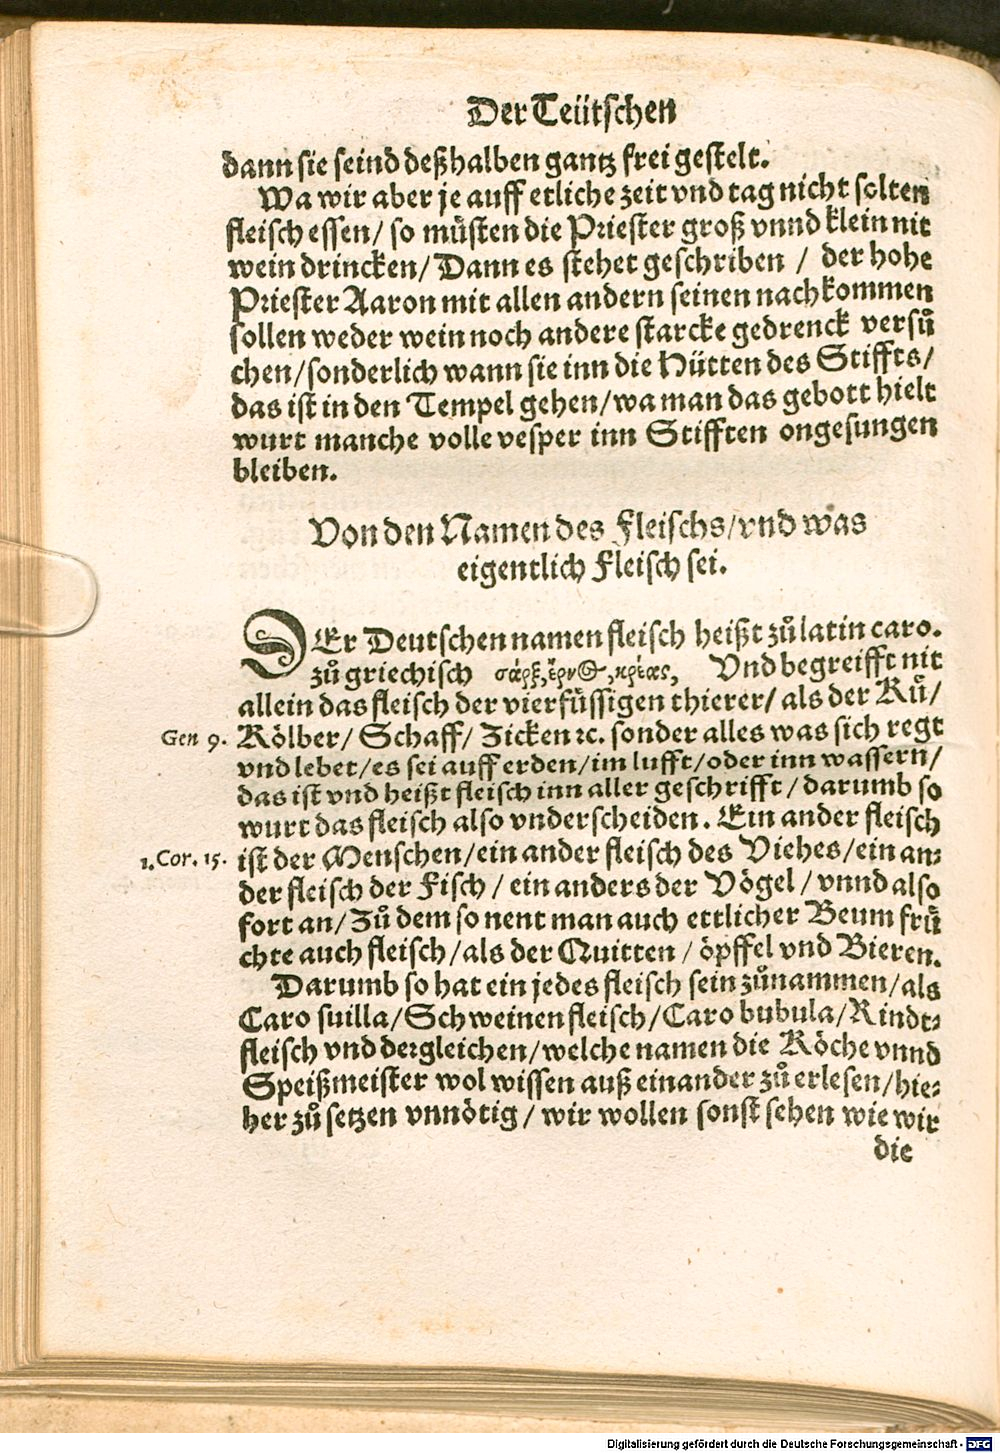 Der Teütschen
dann sie seind deßhalben gantz frei gestelt.
Wa wir aber je auff etliche zeit vnd tag nicht solten
fleisch essen/ so müsten die Priester groß vnnd klein nit
wein drincken/ Dann es stehet geschriben / der hohe
Priester Aaron mit allen andern seinen nachkommen
sollen weder wein noch andere starcke gedrenck versů
chen/sonderlich wann sie inn die Hütten des Stiffts/
das ist in den Tempel gehen/wa man das gebott hielt
wurt manche volle vesper inn Stifften ongesungen
bleiben.
Von den Namen des Fleischs/vnd was
eigentlich Fleisch sei.
DEr Deutschen namen fleisch heißt zů latin caro.
zů griechisch σάρξ, κρέας, Vnd begreifft nit
allein das fleisch der vierfüssigen thierer/ als der Rů/
Gen 9. Kölber/ Schaff/ Zicken ꝛc. sonder alles was sich regt
vnd lebet/es sei auff erden/im lufft/oder inn wassern/
das ist vnd heißt fleisch inn aller geschrifft/darumb so
wurt das fleisch also vnderscheiden. Ein ander fleisch
1.Cor. 15. ist der Menschen/ein ander fleisch des Viehes/ein an⸗
der fleisch der Fisch / ein anders der Vögel / vnnd also
fort an/ Zů dem so nent man auch ettlicher Beum frů
chte auch fleisch/als der Quitten / öpffel vnd Bieren.
Darumb so hat ein jedes fleisch sein zůnammen/als
Caro suilla/Schweinen fleisch/Caro bubula/Rindt⸗
fleisch vnd dergleichen/welche namen die Köche vnnd
Speißmeister wol wissen auß einander zů erlesen/hie⸗
her zů setzen vnnötig / wir wollen sonst sehen wie wir
die
Digitalisierung gefördert durch die Deutsche Forschungsgemeinschaft - DFG